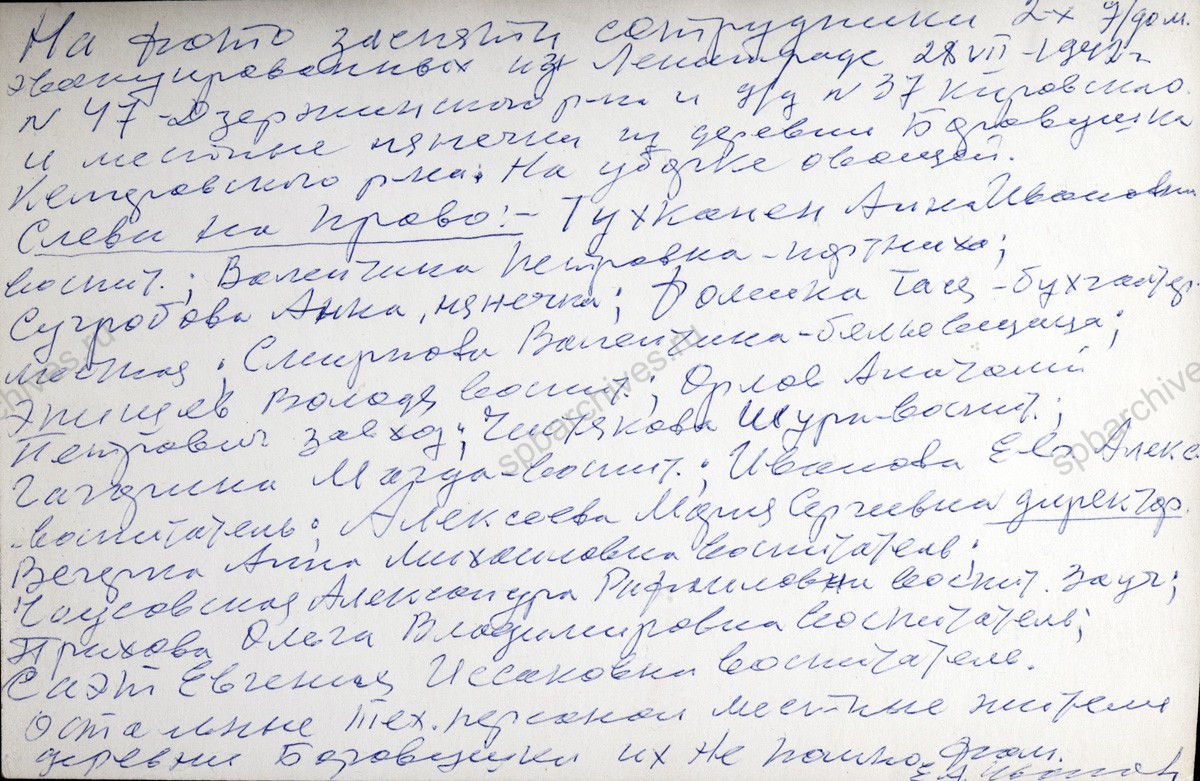 На фото засняты сотрудники 2-х д/дом.
эвакуированных из Ленинграда 28 VII-1942 г
N 47-Дзержинского р-на и д/д N 37 Кировского.
и местные нянечки из деревни Боровушка
Кемеровского р-на. На уборке овощей.
Слева на право:- Тухканен Анна Ивановна
воспит.; Валентина Петровна-портниха;
Сугробова Анна, нянечка; Фомина Тася-бухгалтер-
местная; Смирнова Валентина-бельевщица;
Епишев Володя воспит.; Орлов Анатолий
Петрович завхоз; Чистякова Шура-воспит.;
Магда-воспит.; Иванова Евг. Алекс.
воспитатель; Алексеева Мария Сергеевна директор.
Вечерка Анна Михайловна воспитатель;
Чаусовская Александра воспит. Зауч;
Трихова Ольга Владимировна воспитатель;
Саэт Евгения Иссаковна воспитатель.
Остальные тех.персонал местные жители
деревни Боровушки их не помню.
spbarchives.ru
spbarchives.ru